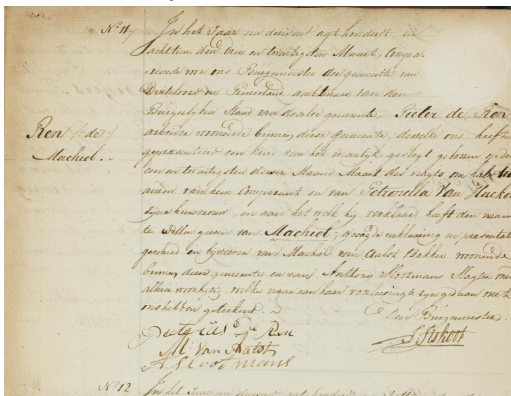 N° 11
In het Jaar een duizend agt honderd en
achttien den een en twintigsten Maart, Compa-
reerde voor ons Burgemeester der gemeente van
ambtenaar van den
Burgerlyken Stand van dezelve gemeente, Pieter de Ren
arbeider woonende binnen deze gemeente, dewelke ons heeft
gepresenteerd een kind van het manlyk geslagt geboren op den
en twintigsten dezer Maand Maart des nagts om
uuren van hem Comparant en van Petronella Van
zyne huisvrouw, en aan het welk hy verklaard heeft den naam
te willen geven van Machiel, gezegde verklaring en presentatie
gedaan en byweezen van Machiel van Aalst Bakker woonende
binnen deze gemeente en van Anthony Slootmans
alhier woonagtig, welke naar aan haar voorlezing te zyn gedaan met
ons hebben geteekend.
de Burgemeester
Ren de
Machiel.
de Ren
M: Van Aalst
A Slootmans
N° 12
In het Jaar een duizend agt honderd